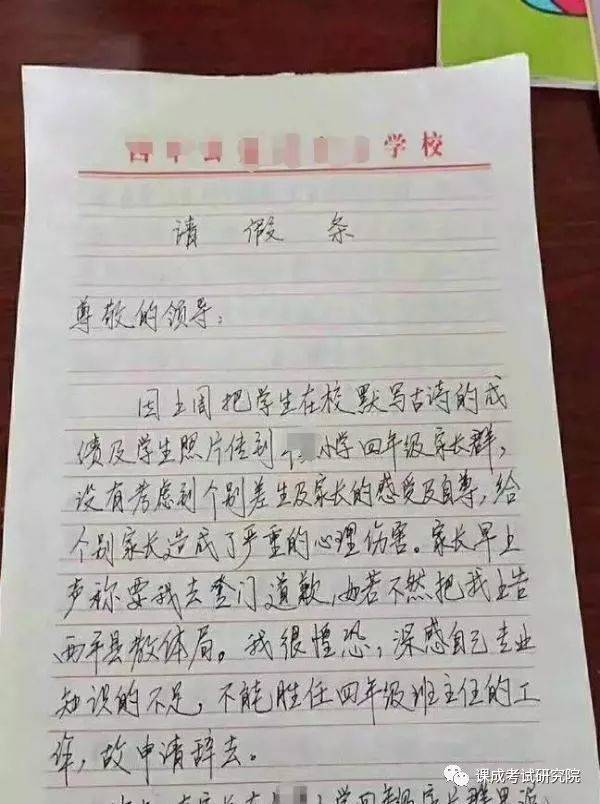 学校
请 假 条
尊敬的领导：
因上周把学生在校默写古诗的成
绩及学生照片传到 小学四年级家长群，
没有考虑到个别差生及家长的感受及自尊，给
个别家长造成了严重的心理伤害。家长早上
声称要我去登门道歉，如若不然把我上告
西平县教体局。我很惶恐，深感自己专业
知识的不足，不能胜任四年级班主任的工
作，故申请辞去。
课成考试研究院